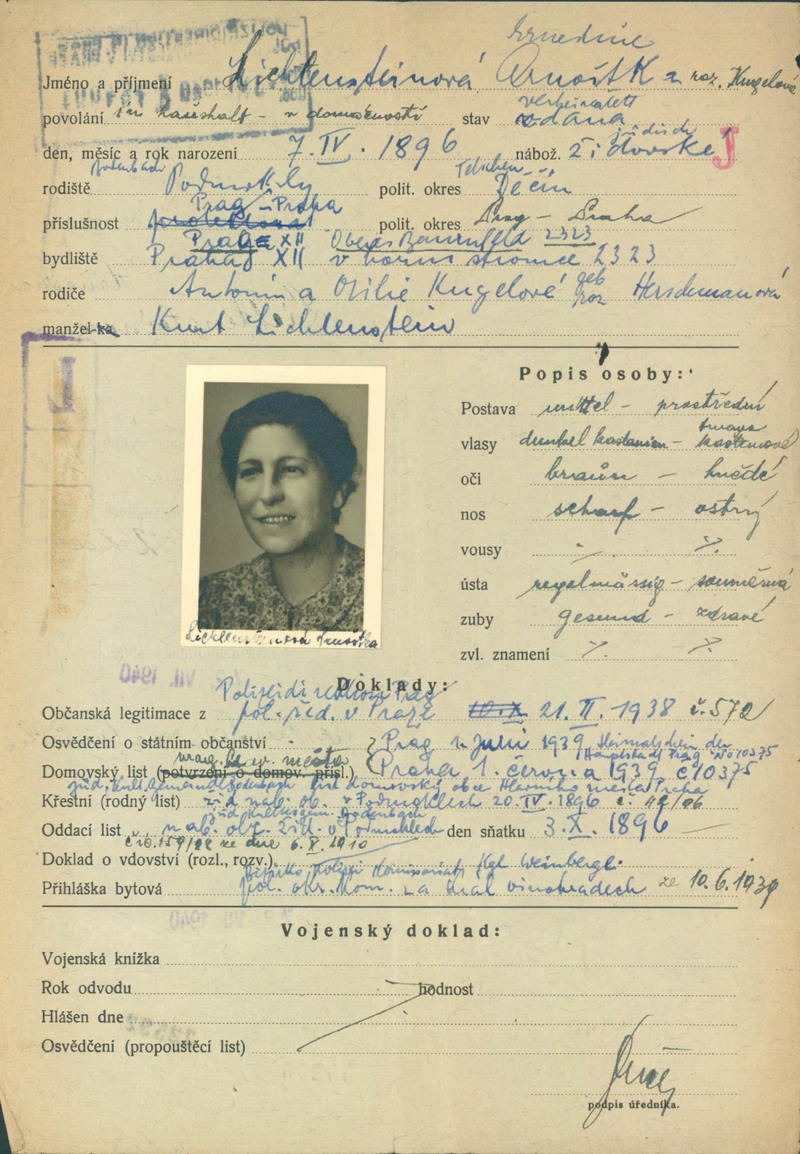 Ernedine
Jméno a příjmení Lichtensteinová Arnoštka roz. Kugelová
verheiratet
povolání im haushalt – v domácnosti stav vdaná
jüdisch
den, měsíc a rok narození 7. IV. 1896 nábož. židovské J
Podmbach Tetschen
rodiště Podmokly polit. okres Děčín
Prag – Praha
příslušnost polit. okres Prag – Praha
Prag XII Oberes Baumfeld 2323
bydliště Praha XII v horní stromce 2323
geb
rodiče Antonín a Otilie Kugelové roz Herschmanová
manžel-ka Kurt Lichtenstein
Popis osoby:
Postava mittel – prostřední
tmavo
vlasy dunkel kastanien – kaštanové
oči braun – hnědé
nos scharf – ostrý
vousy ./. ./.
ústa regelmässig – souměrná
zuby gesund – zdravé
zvl. znamení ./. ./.
Lichtensteinová Arnoštka
VII. 1940
Doklady:
Polizeidirektion Prag
Občanská legitimace z pol. řed. v Praze 10.X 21. II. 1938 č. 572
Osvědčení o státním občanství Prag 1. Juli 1939 Heimatschein der
Hauptstadt Prag No 10375
mag. hl. m. města
Domovský list (potvrzení o domov. přísl.) Praha 1. června 1939 č 10375
domovský obce Hlavního města Praha
Křestní (rodný list) žid. náb. ob. v Podmoklech 20. IV. 1896 č. 42/96
Oddací list náb. obc. žid. v Podmoklech den sňatku 3. X. 1896
ze dne 6. X. 1910
Doklad o vdovství (rozl., rozv.)
Bezirks Polizei Komissariat Kgl Weinberge
Přihláška bytová pol. okr. kom. na král vinohradech ze 10.6.1939
Vojenský doklad:
Vojenská knížka
Rok odvodu hodnost
Hlášen dne
Osvědčení (propouštěcí list)
podpis úředníka.